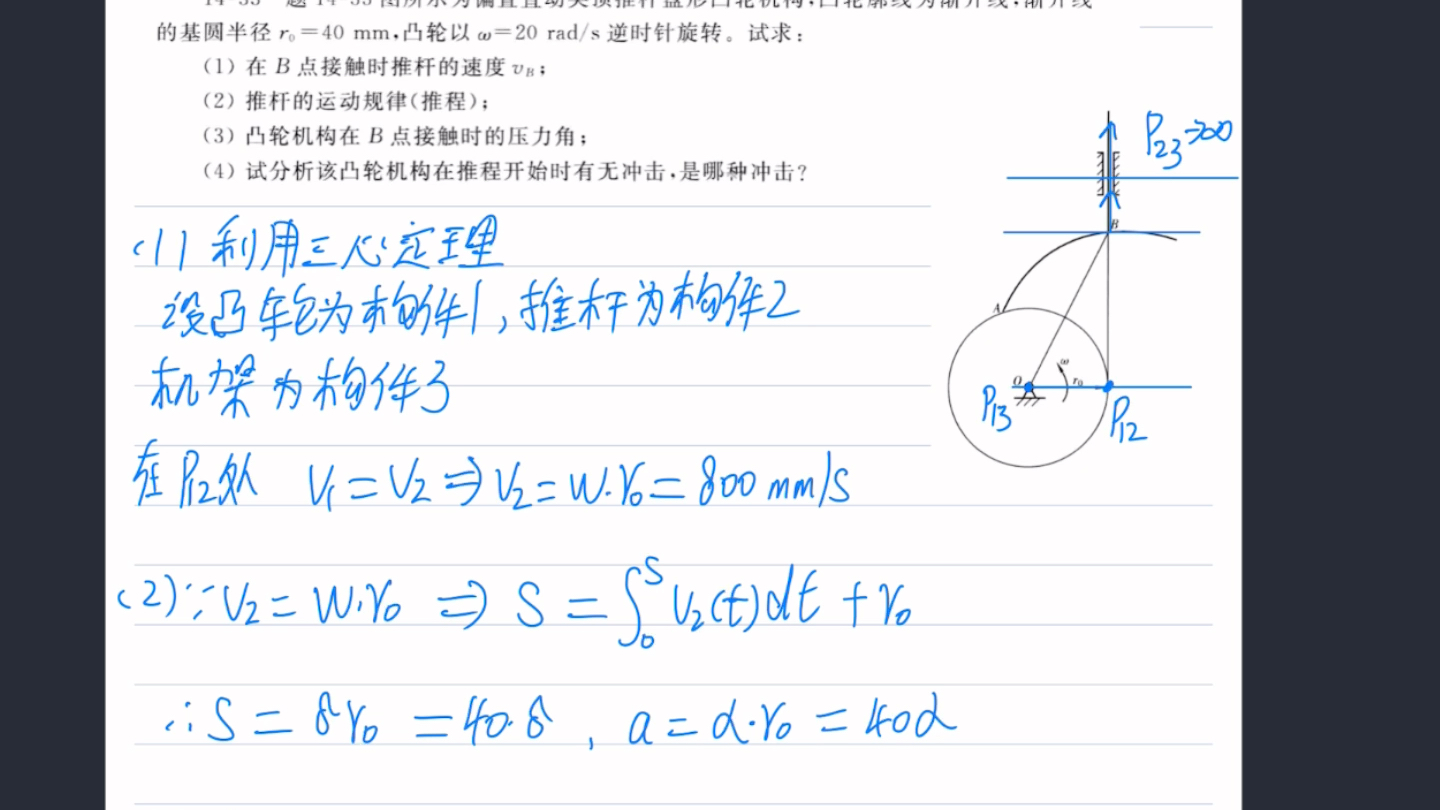 14-33 题 14-33 图所示为偏置直动尖顶推杆盘形凸轮机构,凸轮廓线为渐开线,渐开线
的基圆半径 r₀=40 mm,凸轮以 ω=20 rad/s 逆时针旋转。试求:
(1) 在 B 点接触时推杆的速度 v_B;
(2) 推杆的运动规律(推程);
(3) 凸轮机构在 B 点接触时的压力角;
(4) 试分析该凸轮机构在推程开始时有无冲击,是哪种冲击?
P₂₃→∞
B
A
ω
O
r₀
P₁₃
P₁₂
(1) 利用三心定理
设凸轮为构件1,推杆为构件2
机架为构件3
在P₁₂处 V₁=V₂⇒V₂=W·r₀=800mm/s
(2)∵V₂=W·r₀ ⇒ S=∫₀ˢV₂(t)dt+r₀
∴S=δr₀=40·δ, a=α·r₀=40α